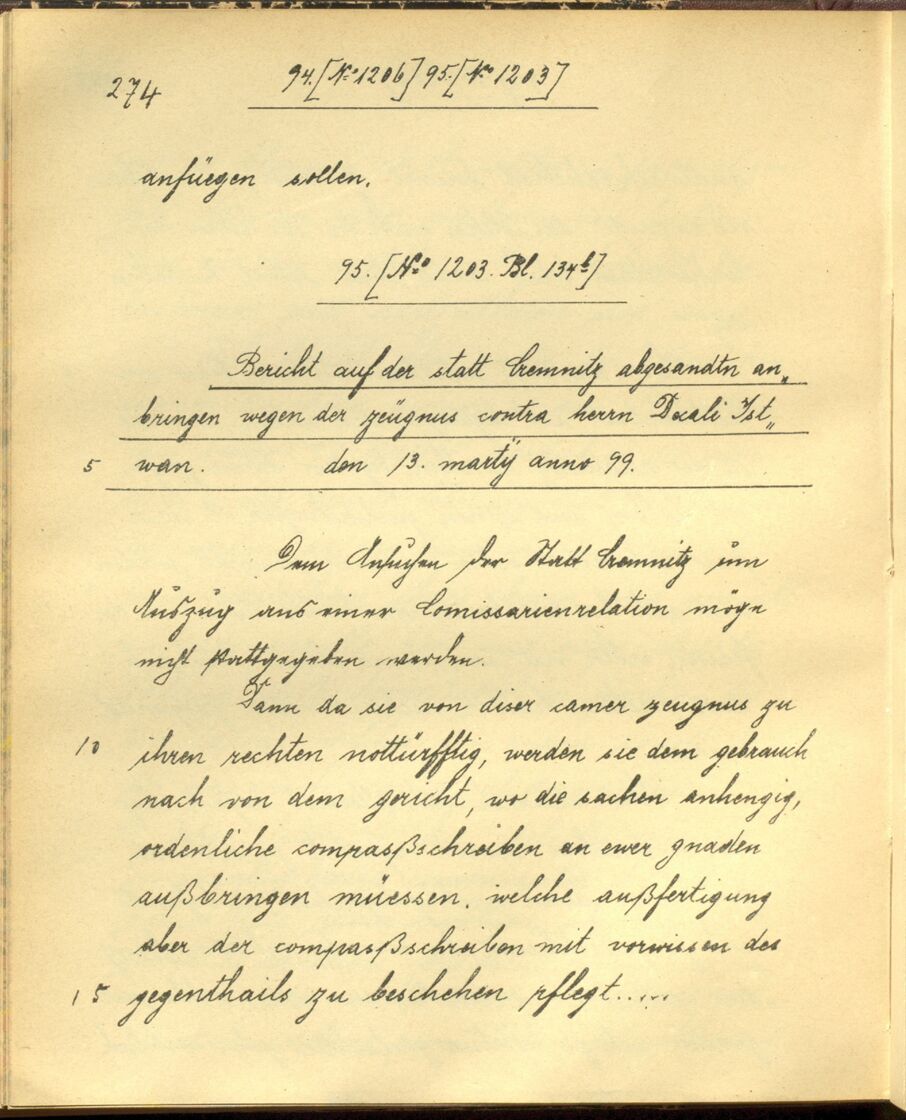 274
94. [No 1206] 95. [No 1203]
anfüegen sollen.
95. [No 1203. Bl. 134b]
Bericht auf der statt Cremnitz abgesandtn an„
bringen wegen der zeügnus contra herrn Dxali Ist„
5 wan. den 13. martÿ anno 99.
Dem Ansuchen der Statt Cremnitz um
Auszug aus einer Comissarienrelation möge
nicht stattgegeben werden.
Dann da sie von diser camer zeugnus zu
10 ihren rechten nottürfftig, werden sie dem gebrauch
nach von dem gericht, wo die sachen anhengig,
ordenliche compasßschreiben an ewer gnaden
außbringen müessen, welche außfertigung
aber der compasßschreiben mit vorwissen des
15 gegenthails zu beschehen pflegt.....